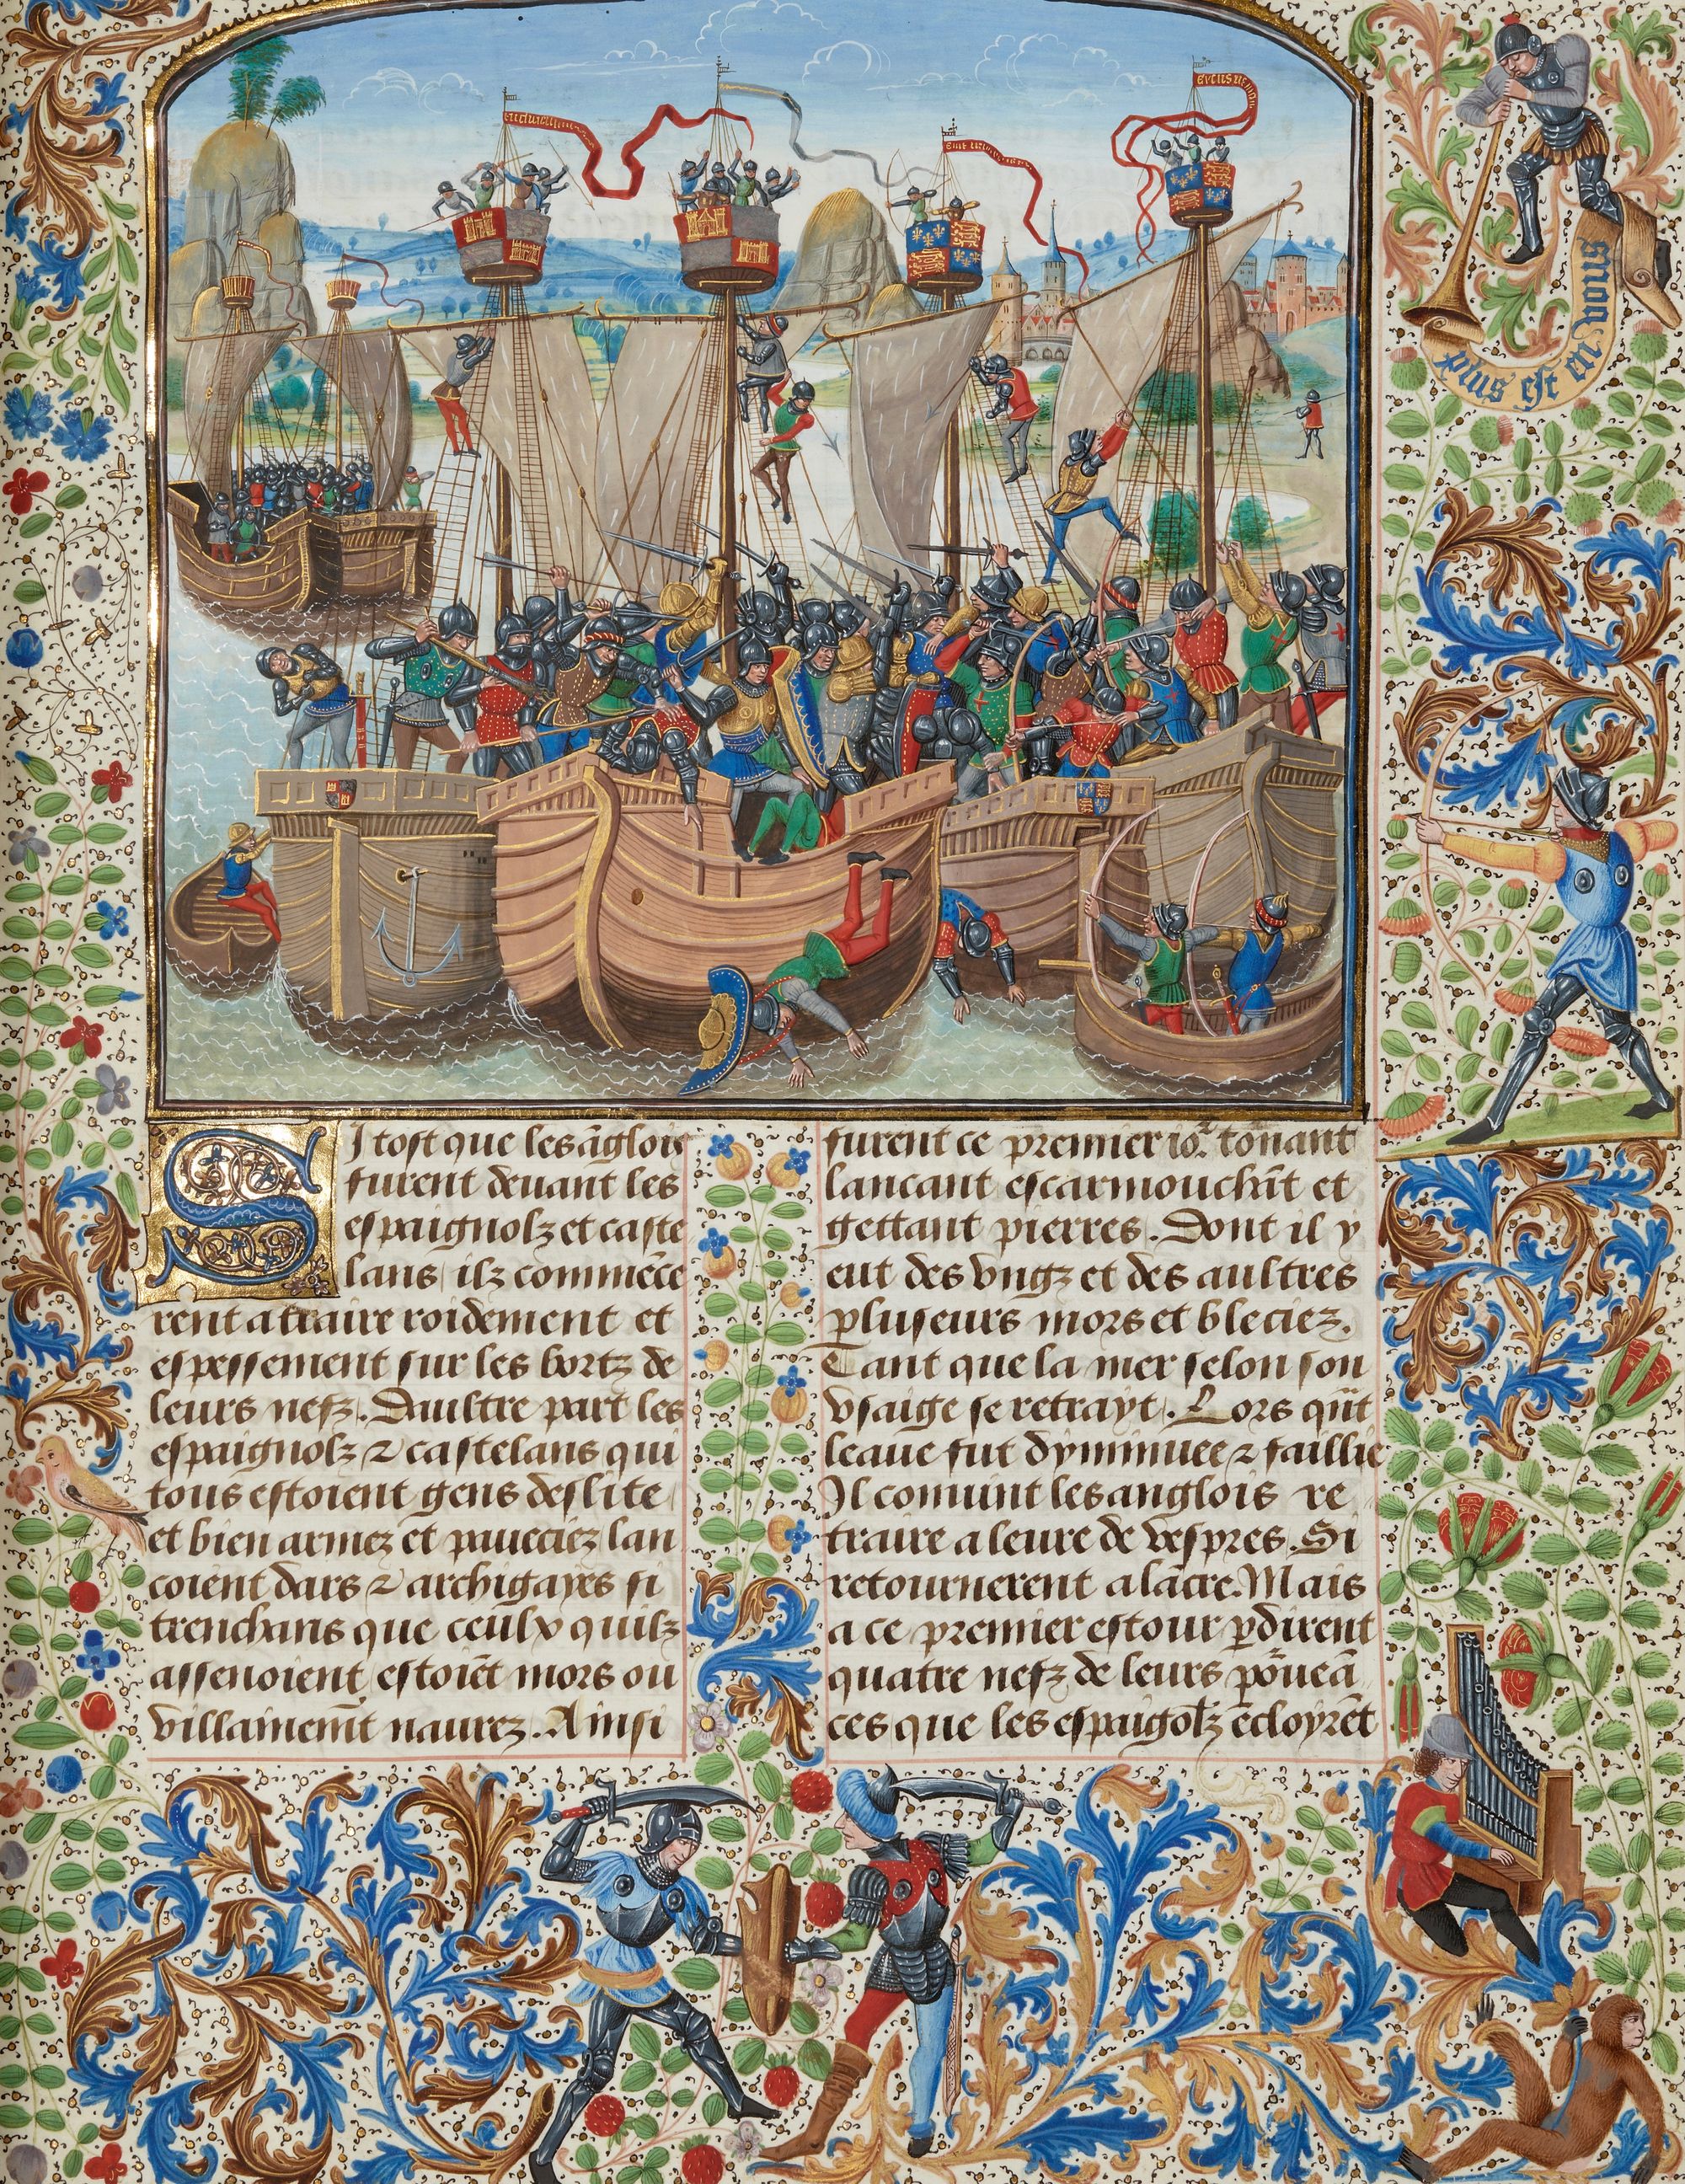 plus est en
vous
SJ tost que les āglois
furent deuant les
espaignolz et caste
lans ilz commēce
rent a traire roidement et
espessement sur les bortz de
leurs nefz. Daultre part les
espaignolz ⁊ castelans qui
tous estoient gens deslite
et bien armez et paueciez lan
coient dars ⁊ archigayes si
trenchans que ceulx quilz
assenoient estoiēt mors ou
villainemt̄ naurez. Ainsi
furent ce premier io᷑. tonant
lancant escarmouchāt et
gettant pierres. Dont il y
eut des vngz et des aultres
pluseurs mors et bleciez.
Tant que la mer selon son
vsaige se retrayt. Lors qūt
leaue fut dyminuee ⁊ faillie
Il conuint les anglois re
traire a leure de vespres. Si
retournerent a lācre. Mais
a ce premier estour ꝑdirent
quatre nefz de leurs pōueā
ces que les espaigolz ēcloyrēt